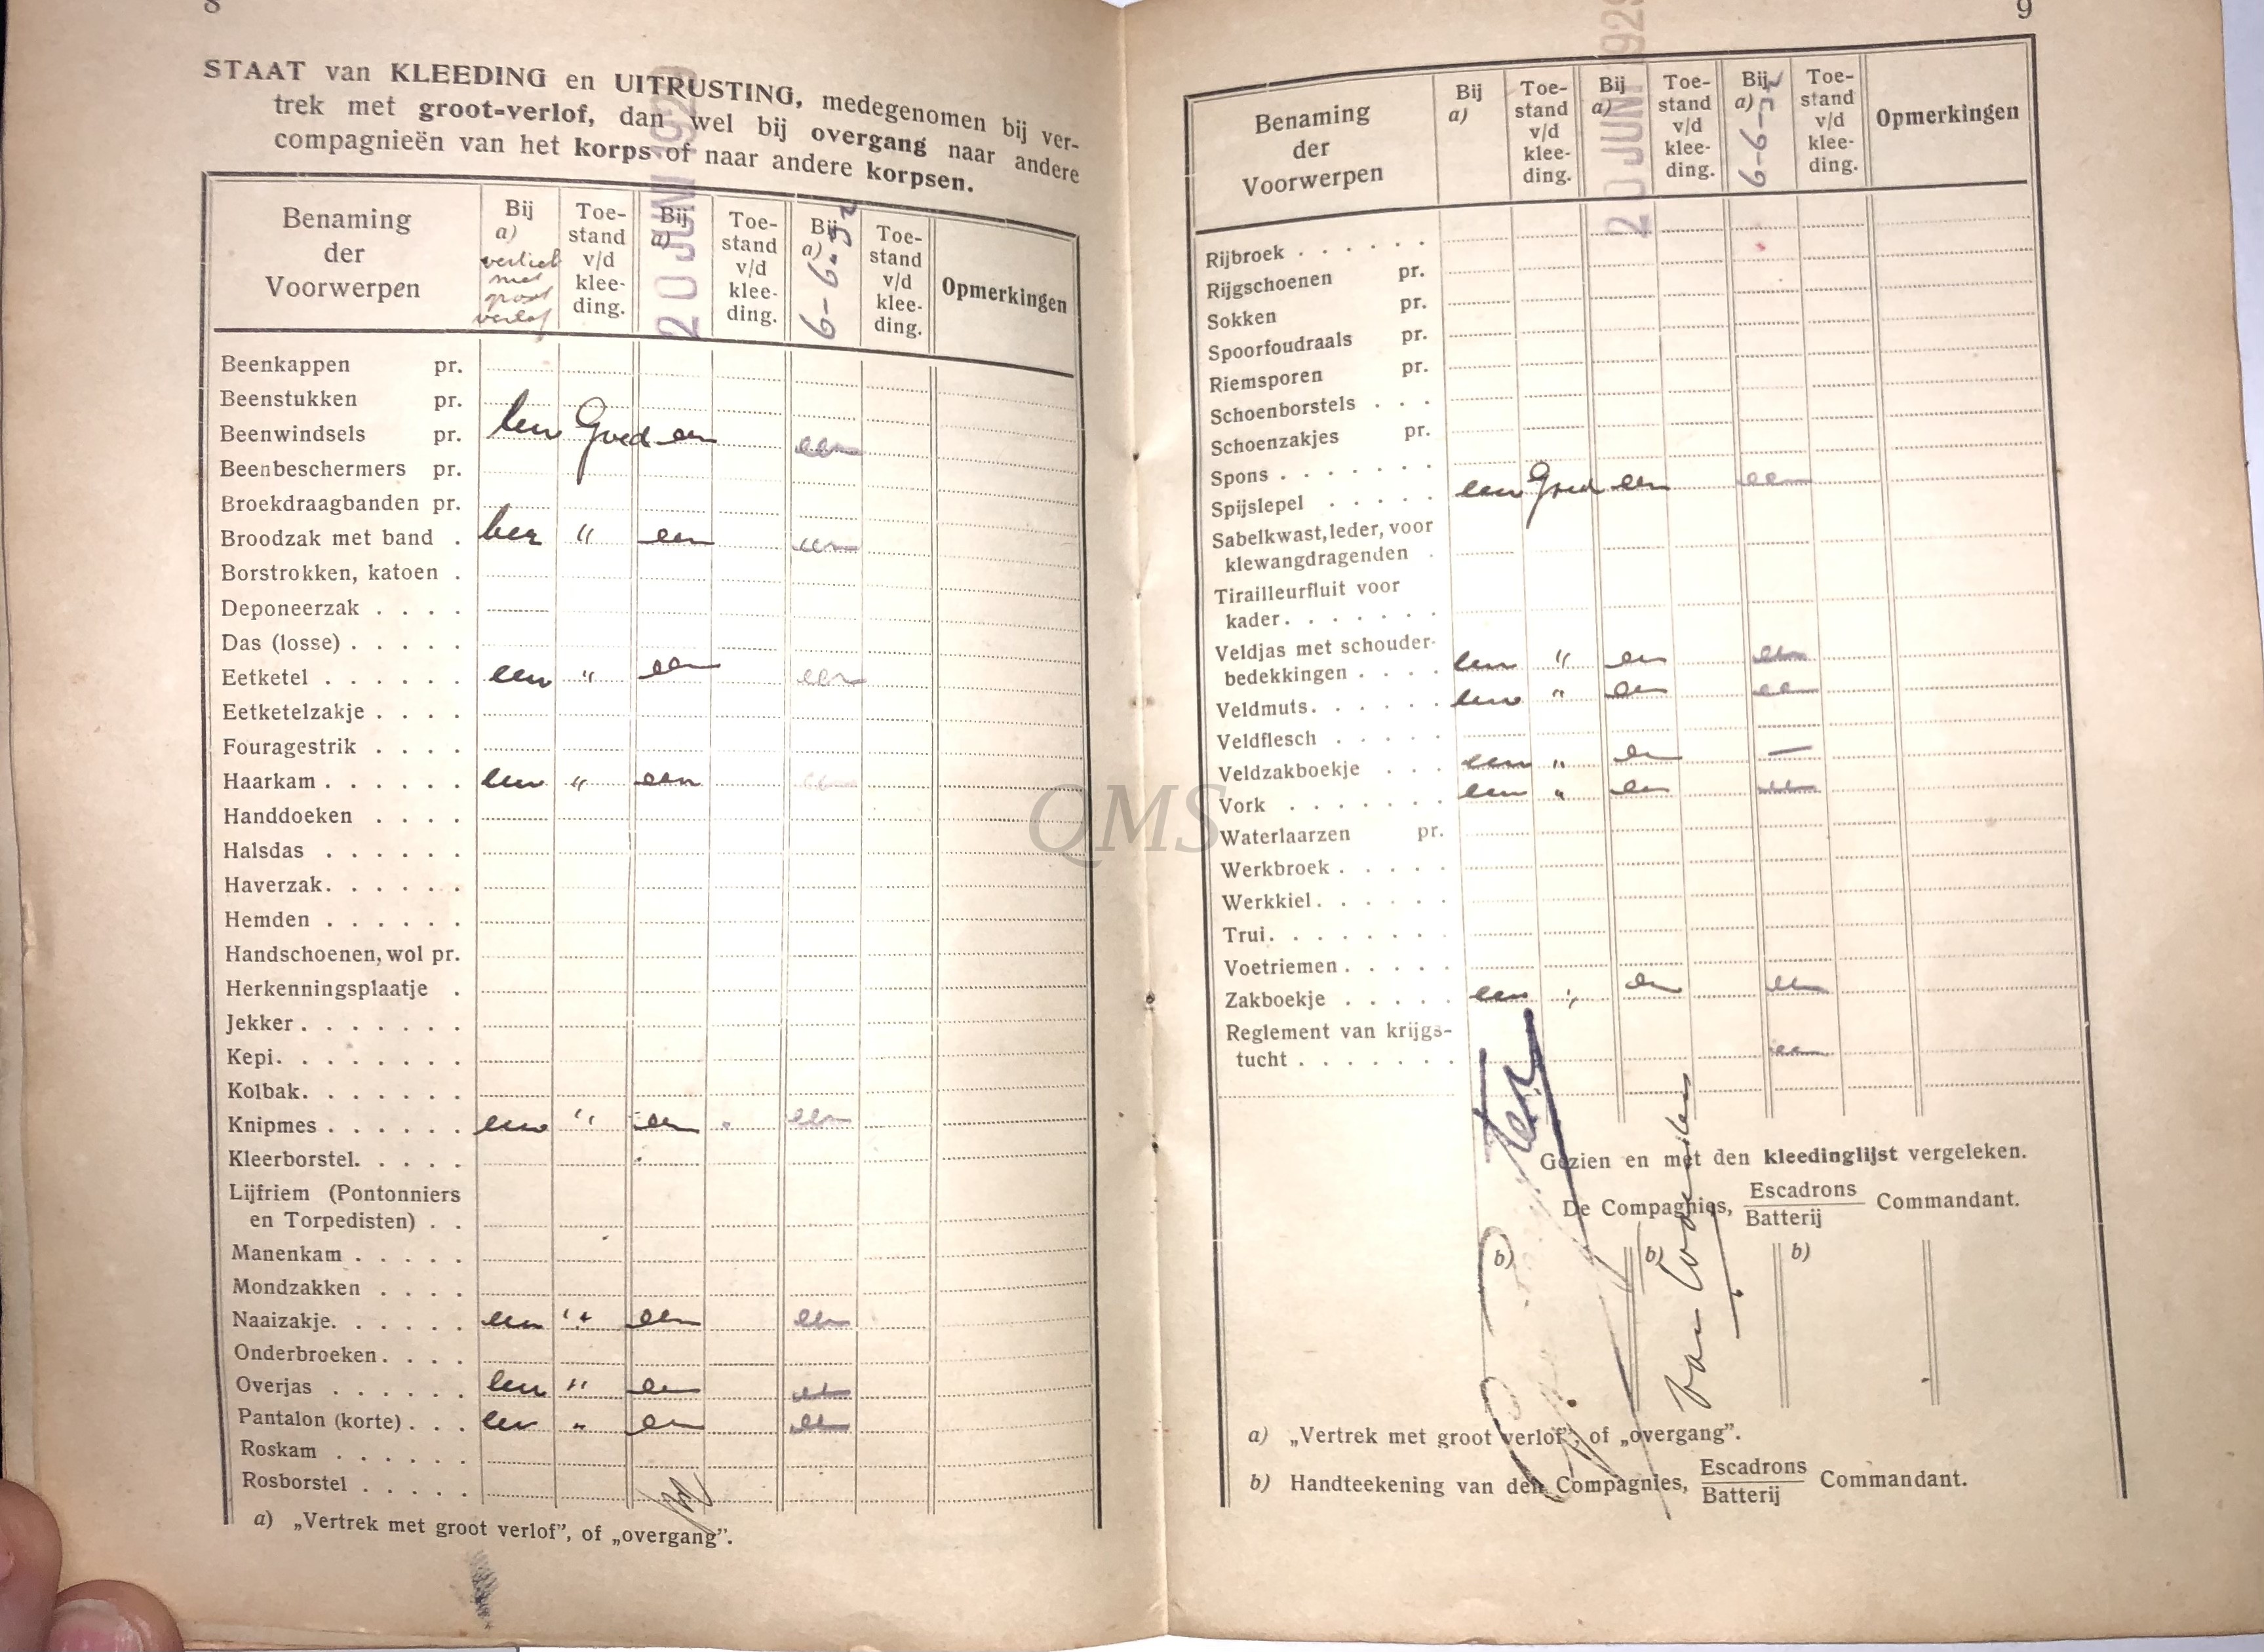 8
STAAT van KLEEDING en UITRUSTING, medegenomen bij ver-
trek met groot-verlof, dan wel bij overgang naar andere
compagnieën van het korps of naar andere korpsen.
Benaming der Voorwerpen
Bij a) verlief met groot verlof
Toe-stand v/d klee-ding.
Bij a) 20 JUNI 1929
Toe-stand v/d klee-ding.
Bij a) 6-6-32
Toe-stand v/d klee-ding.
Opmerkingen
Beenkappen pr.
Beenstukken pr.
Beenwindsels pr. een Goed een een
Beenbeschermers pr.
Broekdraagbanden pr.
Broodzak met band . een " een een
Borstrokken, katoen .
Deponeerzak . . . .
Das (losse) . . . . .
Eetketel . . . . . . een " een een
Eetketelzakje . . . .
Fouragestrik . . . .
Haarkam . . . . . . een " een een
Handdoeken . . . .
Halsdas . . . . . .
Haverzak. . . . . .
Hemden . . . . . .
Handschoenen, wol pr.
Herkenningsplaatje .
Jekker . . . . . . .
Kepi. . . . . . . .
Kolbak. . . . . . .
Knipmes . . . . . . een " een een
Kleerborstel. . . . .
Lijfriem (Pontonniers
en Torpedisten) . .
Manenkam . . . . .
Mondzakken . . . .
Naaizakje. . . . . . een " een een
Onderbroeken. . . .
Overjas . . . . . . een " een een
Pantalon (korte) . . . een " een een
Roskam . . . . . .
Rosborstel . . . . .
a) „Vertrek met groot verlof”, of „overgang”.
9
Benaming der Voorwerpen
Bij a)
Toe-stand v/d klee-ding.
Bij a) 20 JUNI 1929
Toe-stand v/d klee-ding.
Bij a) 6-6-32
Toe-stand v/d klee-ding.
Opmerkingen
Rijbroek . . . . . .
Rijgschoenen pr.
Sokken pr.
Spoorfoudraals pr.
Riemsporen pr.
Schoenborstels . . .
Schoenzakjes pr.
Spons . . . . . . .
Spijslepel . . . . . een Goed een een
Sabelkwast, leder, voor
klewangdragenden .
Tirailleurfluit voor
kader. . . . . . .
Veldjas met schouder-
bedekkingen . . . . een " een een
Veldmuts. . . . . . een " een een
Veldflesch . . . . .
Veldzakboekje . . . een " een —
Vork . . . . . . . een " een een
Waterlaarzen pr.
Werkbroek . . . . .
Werkkiel. . . . . .
Trui. . . . . . . .
Voetriemen . . . . .
Zakboekje . . . . . een " een een
Reglement van krijgs-
tucht . . . . . . . een
Gezien en met den kleedinglijst vergeleken.
De Compagnies, Escadrons Batterij Commandant.
b) b) b)
a) „Vertrek met groot verlof”, of „overgang”.
b) Handteekening van den Compagnies, Escadrons Batterij Commandant.
QMS